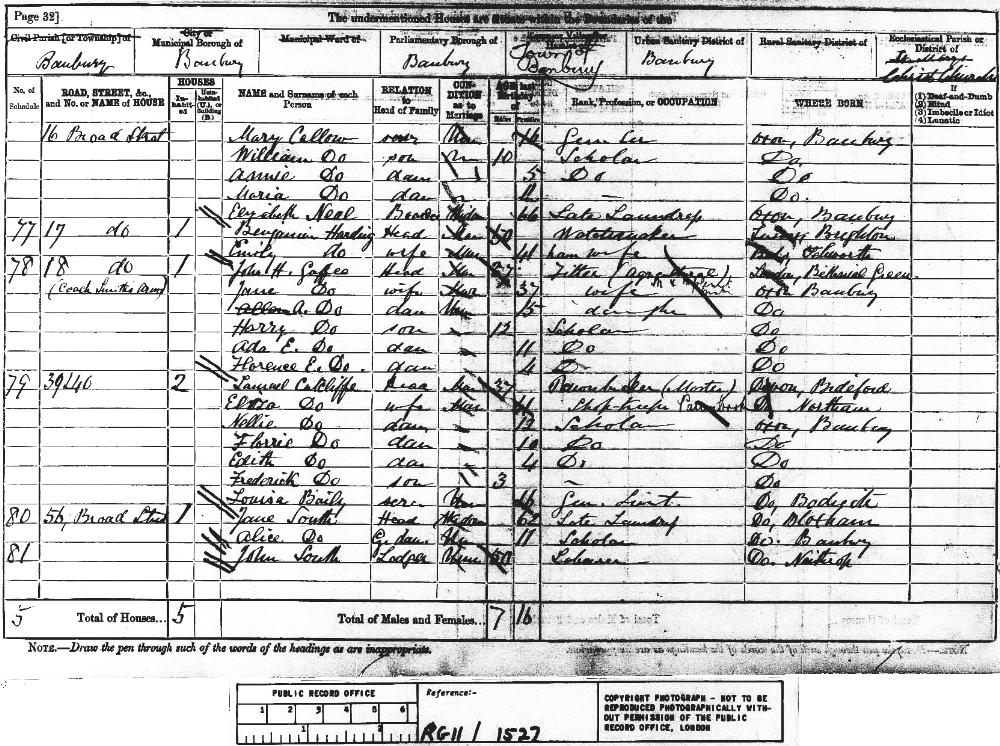 Page 32]
The undermentioned Houses are situate within the Boundaries of the
Civil Parish [or Township] of
City or Municipal Borough of
Municipal Ward of
Parliamentary Borough of
Town of
Urban Sanitary District of
Rural Sanitary District of
Ecclesiastical Parish or District of
Banbury Banbury Banbury Banbury Banbury
No. of Schedule
ROAD, STREET, &c., and No. or NAME of HOUSE
HOUSES
Inhabited
Uninhabited (U.), or Building (B.)
NAME and Surname of each Person
RELATION to Head of Family
CONDITION as to Marriage
AGE last Birthday of
Males Females
Rank, Profession, or OCCUPATION
WHERE BORN
If
(1) Deaf-and-Dumb
(2) Blind
(3) Imbecile or Idiot
(4) Lunatic
16 Broad Street Mary Callow 16 Oxon, Banbury
William Do son 10 Scholar Do
Annie Do dau 5 Do Do
Maria Do dau Do
Elizabeth Neal 66 Late Laundress Oxon, Banbury
77 17 do 1 Benjamin Harding Head Mar 50 Watchmaker Brighton
Emily do wife Mar 41 wife Isleworth
78 18 do 1 John H. Head Mar 37 Fitter (Agricultural) London, Bethnal Green
(Coach Smiths Arms) Jane Do wife Mar 37 wife Oxon Banbury
A. Do dau Unm 15 Do
Harry Do son 12 Scholar Do
Ada E. Do dau 11 Do Do
Florence E. Do dau 4 Do Do
79 39 & 40 2 Samuel Cutcliffe Head Mar 37 Pawnbroker (Master) Devon, Bideford
Eliza Do wife Mar 41 Shop-keeper Do Northam
Nellie Do dau 12 Scholar Oxon, Banbury
Florrie Do dau 10 Do Do
Edith Do dau 4 Do Do
Frederick Do son 3 Do
Louisa Baily ser Un 16 Gen. Servt. Do, Bodicote
80 56, Broad Street 1 Jane South Head Widow 62 Late Laundress Do, Bloxham
Alice Do G. dau Unm 11 Scholar Do. Banbury
81 John South Lodger Unm 50 Labourer Do. Neithrop
5 Total of Houses... 5 Total of Males and Females... 7 16
NOTE.—Draw the pen through such of the words of the headings as are inappropriate.
PUBLIC RECORD OFFICE
1 2 3 4 5 6
1 2
Reference:-
RG11 / 1527
COPYRIGHT PHOTOGRAPH - NOT TO BE
REPRODUCED PHOTOGRAPHICALLY WITH-
OUT PERMISSION OF THE PUBLIC
RECORD OFFICE, LONDON